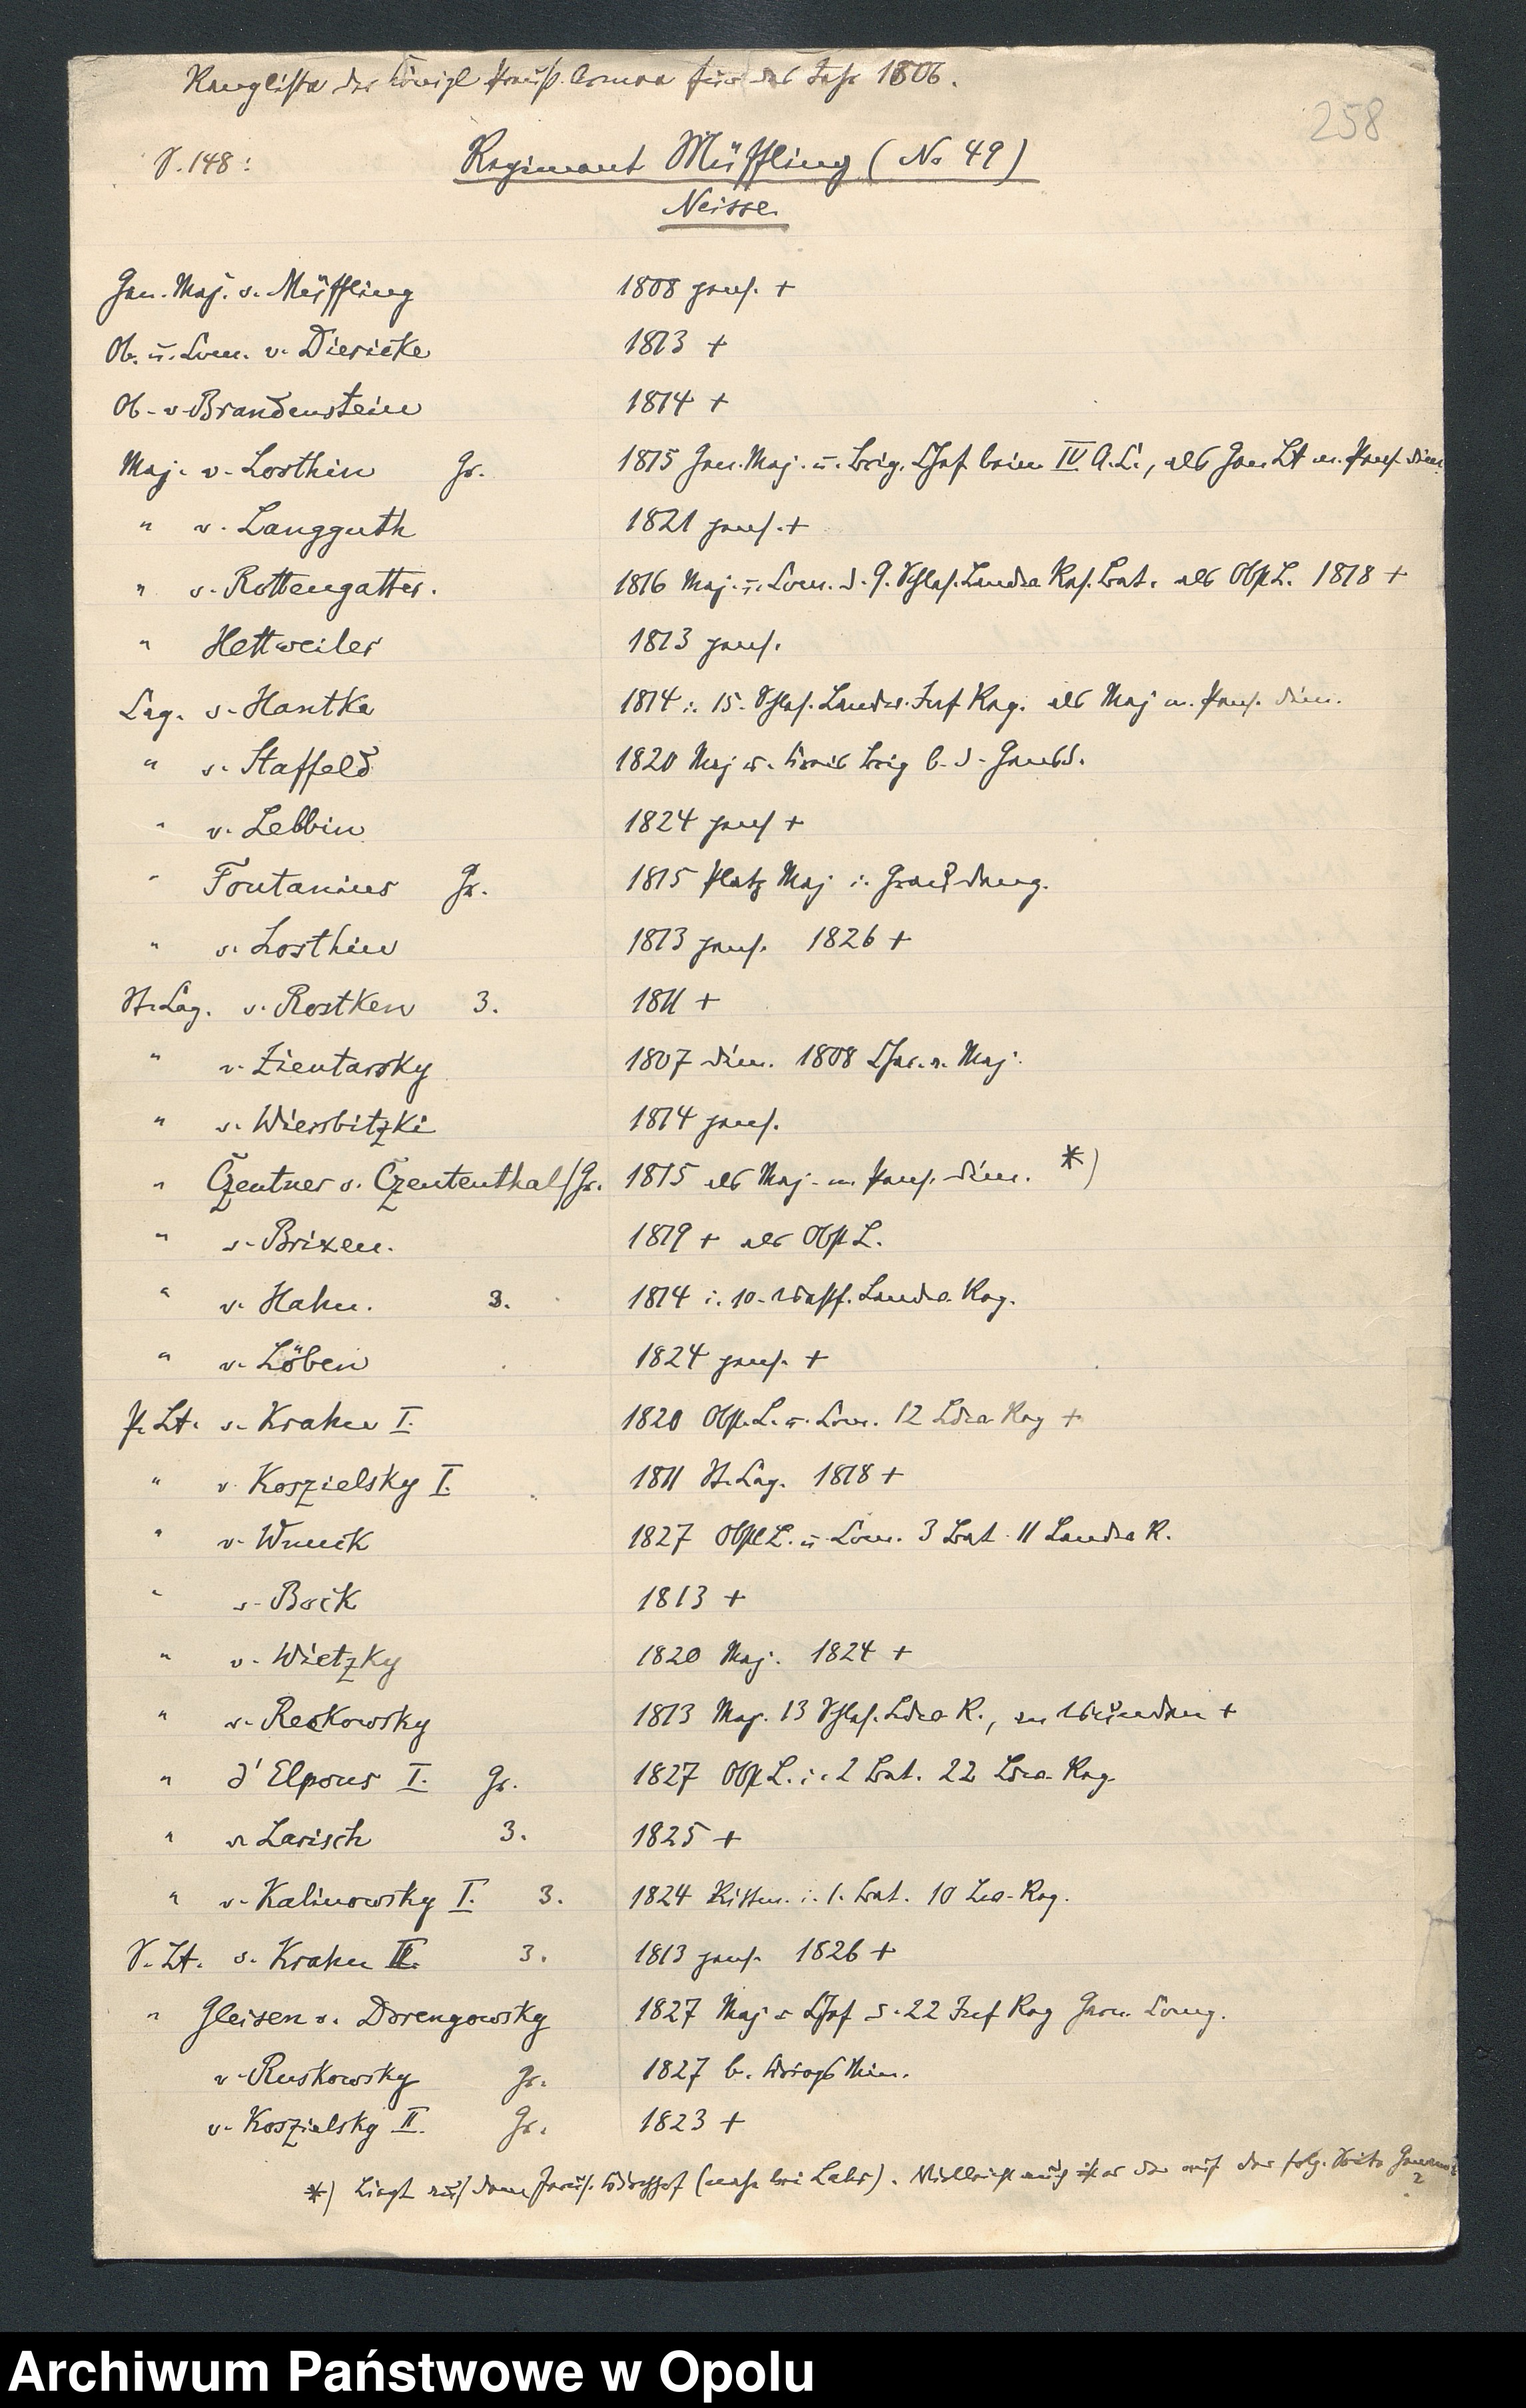 Rangliste der Königl Preuß. Armee für das Jahr 1806.
258
S. 148: Regiment Müffling (No 49)
Neisse.
Gen. Maj. v. Müffling 1808 pens. +
Ob. u. Com. v. Diericke 1813 +
Ob. v. Brandenstein 1814 +
Maj. v. Losthin Gr. 1815 Gen. Maj. u. Brig. Chef beim IV A.C., als Gen Lt m. Pens. dim.
" v. Langguth 1821 pens. +
" v. Rottengatter. 1816 Maj. u. Com. d. 9. Schles. Landw Res. Bat. als Obst L. 1818 +
" Hettweiler 1813 pens.
Cap. v. Hantke 1814 i. 15. Schles. Landw. Inf Reg. als Maj m. Pens. dim.
" v. Staffeld 1820 Maj u. Kreis Brig b. d. Gensd.
" v. Lebbin 1824 pens +
" Fontanius Gr. 1815 Platz Maj i. Graudenz.
" v. Losthin 1813 pens. 1826 +
St. Cap. v. Rostken 3. 1811 +
" v. Zientarsky 1807 dim. 1808 Char. a. Maj.
" v. Wiersbitzki 1814 pens.
" Czentner v. Czententhal/Gr. 1815 als Maj. m. Pens. dim. *)
" v. Brixen. 1819 + als Obst L.
" v. Hahn. 3. 1814 i. 10. Westf. Landw. Reg.
" v. Löben 1824 pens. +
P. Lt. v. Krahn I. 1820 Obst. L. u. Com. 12 Ldw. Reg +
" v. Koszielsky I. 1811 St. Cap. 1818 +
" v. Wnuck 1827 Obst L. u. Com. 3 Bat. 11 Landw R.
" v. Bock 1813 +
" v. Wietzky 1820 Maj. 1824 +
" v. Reskowsky 1813 Maj. 13 Schles. Ldw R., an Wunden +
" d'Elpons I. Gr. 1827 Obst L. i. 2 Bat. 22 Ldw. Reg.
" v. Larisch 3. 1825 +
" v. Kalinowsky I. 3. 1824 Rittm. i. 1. Bat. 10 Lw. Reg.
S. Lt. v. Krahn II. 3. 1813 pens. 1826 +
" Gleisen v. Dorengowsky 1827 Maj u Chef d. 22 Inf Reg Garn. Comp.
v. Ruskowsky Gr. 1827 b. Kriegs Min.
v. Koszielsky II. Gr. 1823 +
*) Liegt auf dem Kirchhof (nahe bei Lahr). Vielleicht auch er der auf der folg. Seite ?
Archiwum Państwowe w Opolu